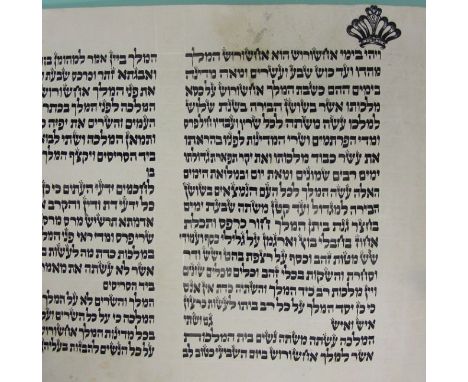 ויהי בימי אחשורוש הוא אחשורוש המלך
מהדו ועד כוש שבע ועשרים ומאה מדינה
בימים ההם כשבת המלך אחשורוש על כסא
מלכותו אשר בשושן הבירה בשנת שלוש
למלכו עשה משתה לכל שריו ועבדיו חיל פרס
ומדי הפרתמים ושרי המדינות לפניו בהראתו
את עשר כבוד מלכותו ואת יקר תפארת גדולתו
ימים רבים שמונים ומאת יום ובמלואת הימים
האלה עשה המלך לכל העם הנמצאים בשושן
הבירה למגדול ועד קטן משתה שבעת ימים
בחצר גנת ביתן המלך חור כרפס ותכלת
אחוז בחבלי בוץ וארגמן על גלילי כסף ועמודי
שש מטות זהב וכסף על רצפת בהט ושש ודר
וסחרת והשקות בכלי זהב וכלים מכלים שונים
ויין מלכות רב כיד המלך והשתיה כדת אין אנס
כי כן יסד המלך על כל רב ביתו לעשות כרצון
איש ואיש גם ושתי
המלכה עשתה משתה נשים בית המלכות
אשר למלך אחשורוש ביום השביעי כטוב לב
המלך ביין אמר למהומן
ואבגתא זתר וכרכס שבעת
את פני המלך אחשורוש
המלכה לפני המלך בכתר
העמים והשרים את יפיה
ותמאן המלכה ושתי לבוא
ביד הסריסים ויקצף המלך
בו
לחכמים ידעי העתים כי
כל ידעי דת ודין והקרב
אדמתא תרשיש מרס
שרי פרס ומדי ראי פני
במלכות כדת מה לעשות
אשר לא עשתה את מאמר
ביד הסריסים
המלך והשרים לא על המלך
המלכה כי על כל השרים ועל
בכל מדינות המלך אחשורו
על כל הנשים להבזות בעליהן